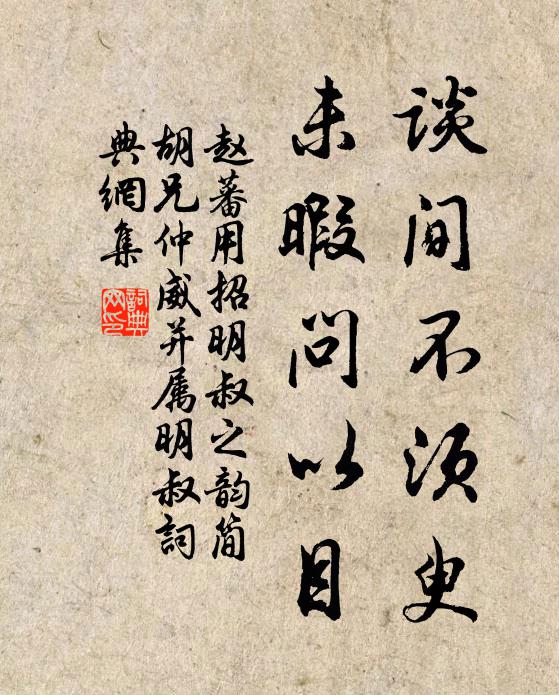 谈间不须臾
未暇问以目
赵蕃用招明叔之韵简
胡兄仲威并属明叔词
典網集
詞典
网印